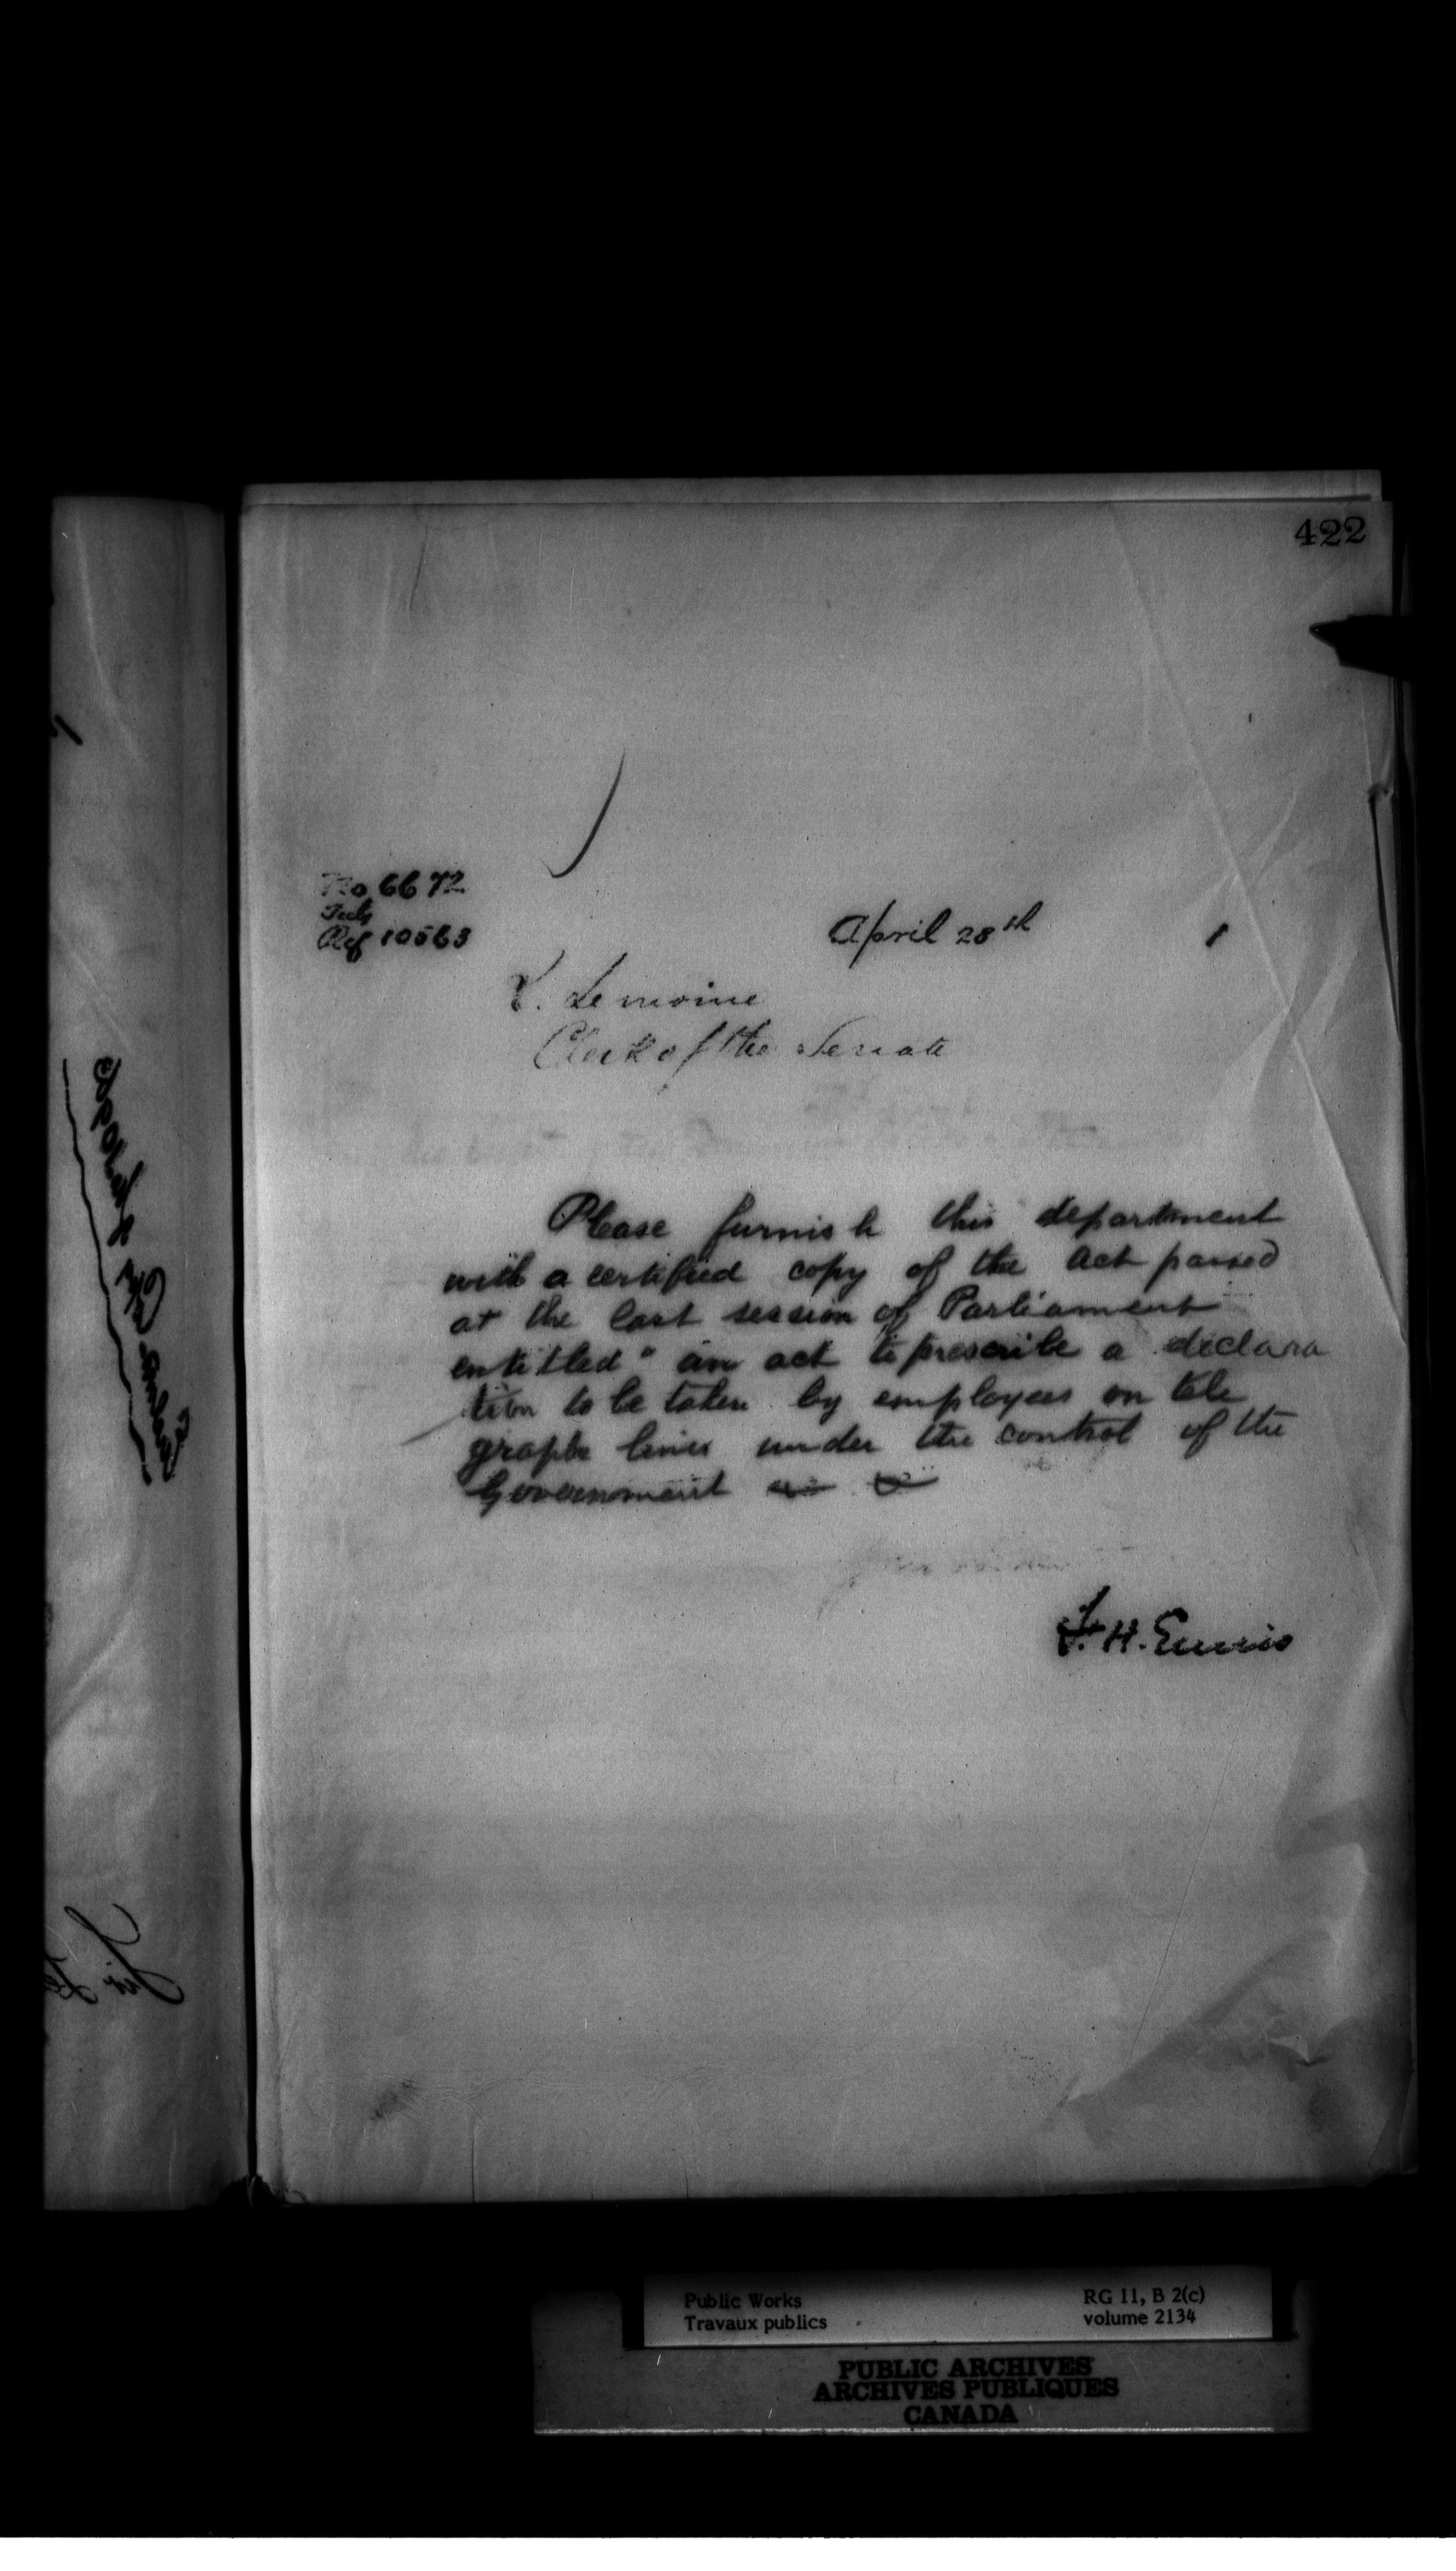 422
No 6672
Ref 10563
April 28th
Lemoine
Clerk of the Senate
Please furnish this department
with a certified copy of the Act passed
at the last session of Parliament
entitled " an act to prescribe a declara
tion to be taken by employees on tele
graph lines under the control of the
Government
F. H. Ennis
Public Works
Travaux publics
RG 11, B 2(c)
volume 2134
PUBLIC ARCHIVES
ARCHIVES PUBLIQUES
CANADA